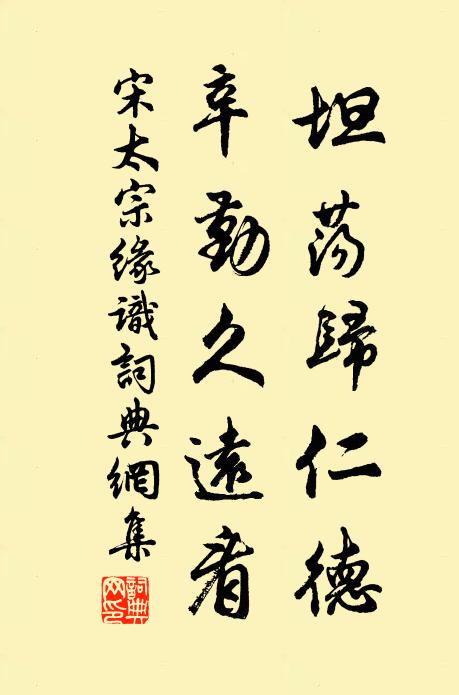 坦蕩歸仁德
辛勤久遠看
宋太宗緣識詞典網集
詞典網印